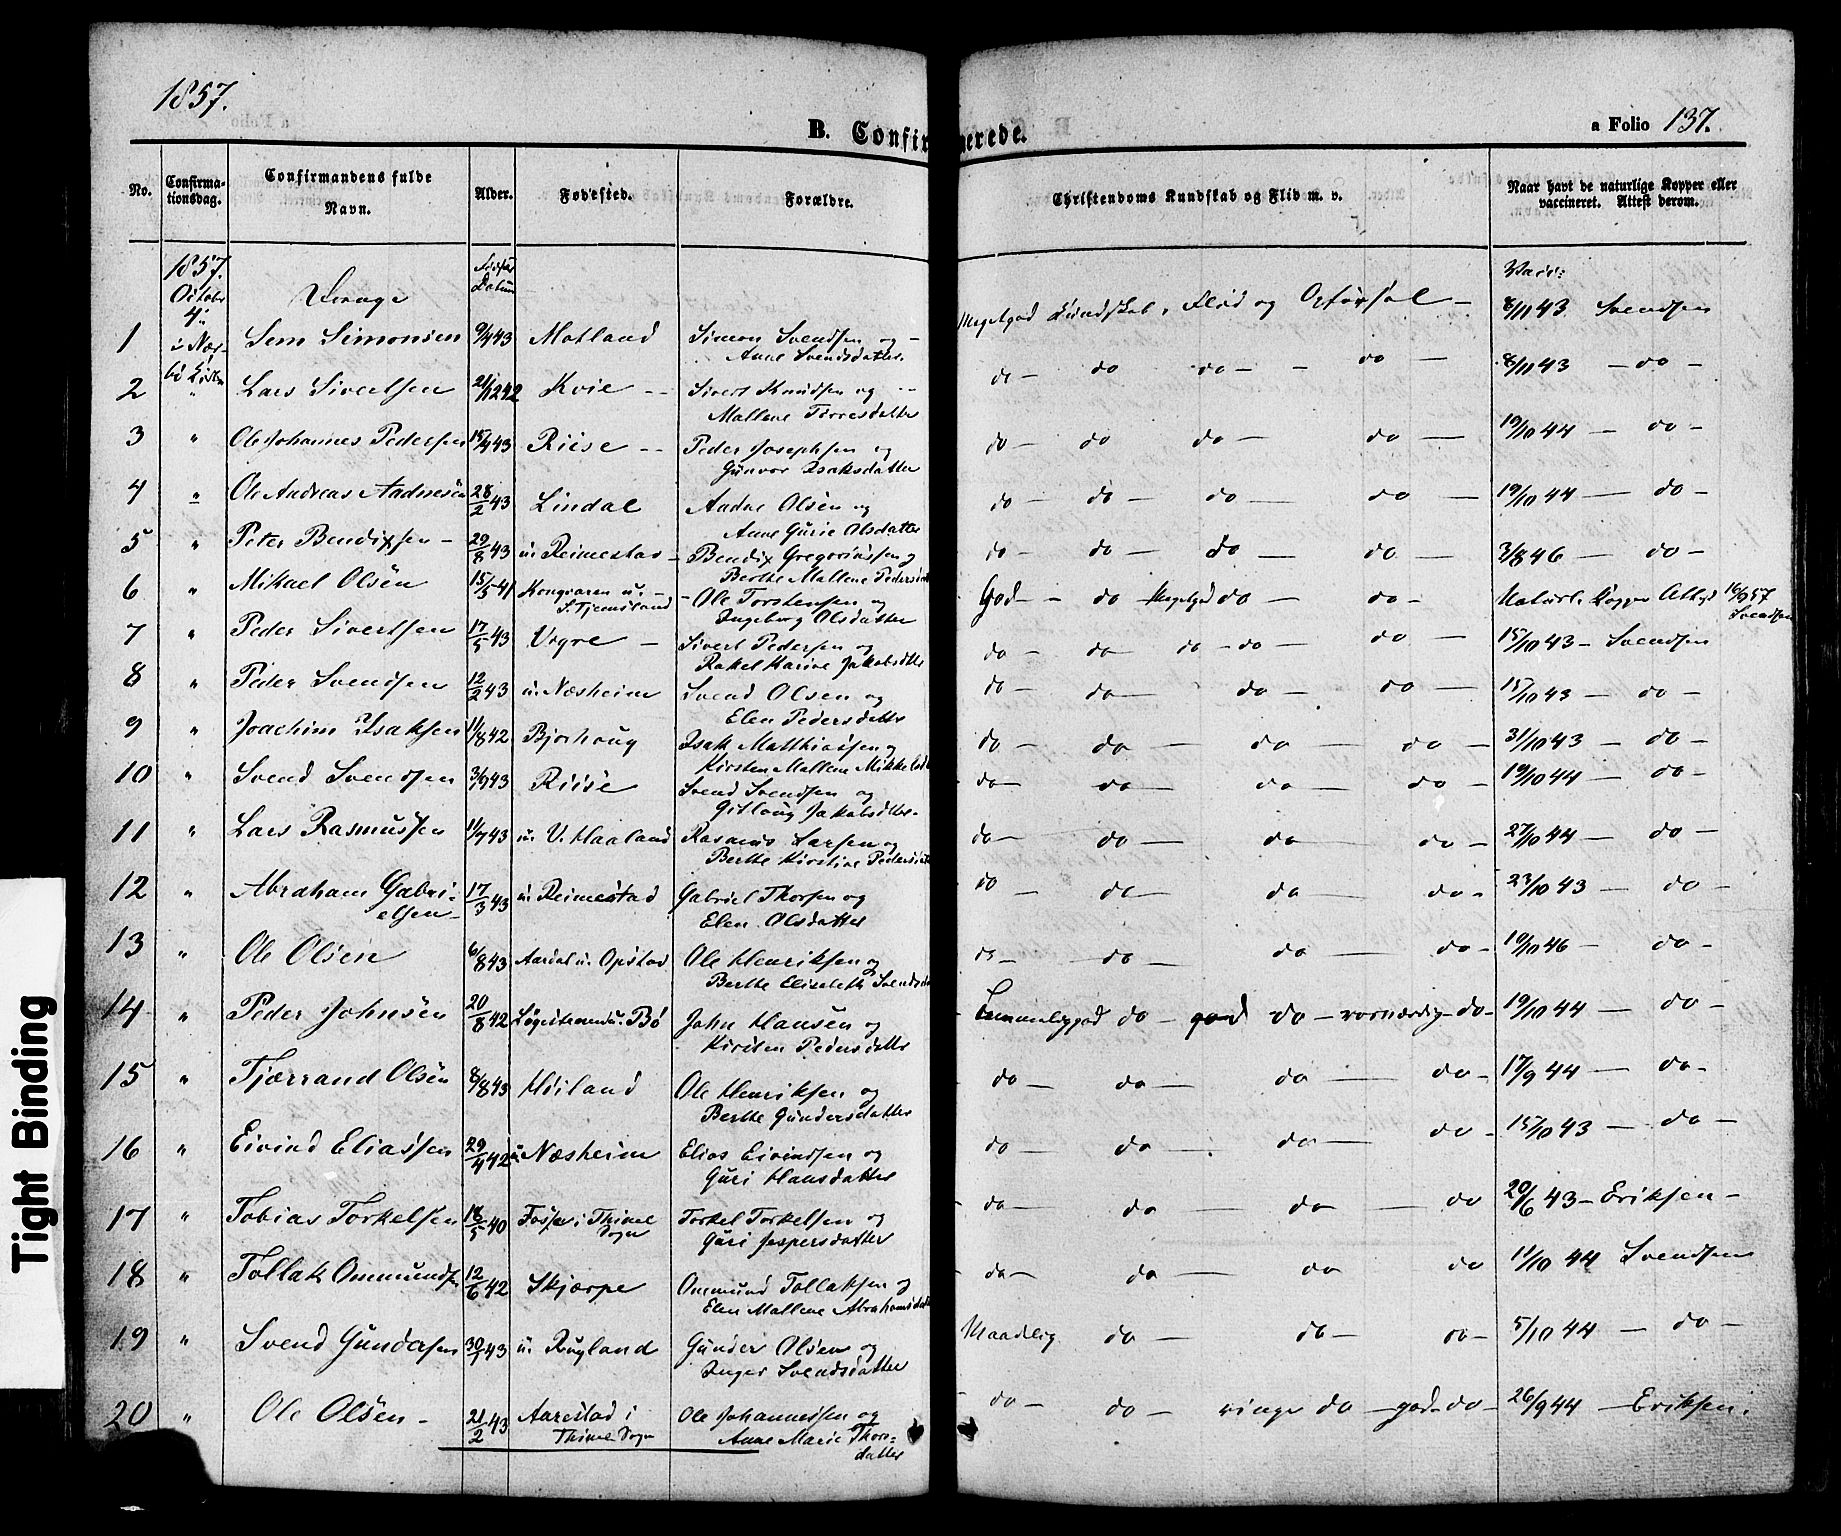 1857.
B. Confirmerede.
a Folio 137.
No. Confirmationsdag. Confirmandens fulde Navn. Alder. Fødested. Forældre. Christendoms Kundskab og Flid m. v. Naar havt de naturlige Kopper eller vaccineret. Attest derom.
1857. October 4: Drenge Datum Vacc:
1 Sem Simonsen 9/4 43 Motland Simon Svendsen og Anne Svendsdatter Megetgod Kundskab, Flid og Opførsel 8/11 43 Svendsen
2 " Lars Sivertsen 21/12 42 Kvie Sivert Knudsen og Mallene Torresdatter do do do do 8/11 43 do
3 " Ole Johannes Pedersen 15/4 43 Riise Peder Josephsen og Gunvor Isaksdatter do do do do 19/10 44 do
4 " Ole Andreas Aadnesen 28/2 43 Lindal Aadne Olsen og Anne Gurie Olsdatter do do do do 19/10 44 do
5 " Peter Bendixsen 29/8 43 u: Reimestad Bendix Gregoriussen og Berthe Mallene Pedersd do do do do 3/8 46 do
6 " Mikael Olsen 15/5 41 Kongvaren u: S. Tjemsland Ole Torstensen og Ingeborg Olsdatter God do Megetgod do do Naturl. Kopper Attest 16/9 57 Svendsen
7 " Peder Sivertsen 17/5 43 Vigre Sivert Pedersen og Rakel Karine Jakobsdtter do do do do do 15/10 43 Svendsen
8 " Peder Svendsen 12/2 43 u: Næsheim Svend Olsen og Elen Pedersdatter do do do do 15/10 43 do
9 " Joachim Isaksen 11/8 42 Bjorhaug Isak Matthiassen og Kirsten Mallene Mikkelsd do do do do 31/10 43 do
10 " Svend Svendsen 3/9 43 Riise Svend Svendsen og Gitlaug Jakobsdtter do do do do 19/10 44 do
11 " Lars Rasmussen 11/7 43 u: V. Haaland Rasmus Larsen og Berthe Kirstine Pedersdat do do do do 27/10 44 do
12 " Abraham Gabrielsen 17/3 43 u: Reimestad Gabriel Thorsen og Elen Olsdatter do do do do 23/10 43 do
13 " Ole Olsen 6/8 43 Aardal u: Opstad Ole Henriksen og Berthe Elisabeth Svendsd do do do do 19/10 46 do
14 " Peder Johnsen 20/8 42 u: Bø John Hansen og Kirsten Pedersdatter Temmeliggod do god do do 19/10 44 do
15 " Tjærrand Olsen 8/8 43 Høiland Ole Henriksen og Berthe Gundersdatter do do do do 17/9 44 do
16 " Eivind Eliassen 29/4 42 u: Næsheim Elias Eivindsen og Guri Hansdatter do do do do 15/10 43 do
17 " Tobias Torkelsen 18/5 40 i Thime Sogn Torkel Torkelsen og Guri Jespersdatter do do do do 20/6 43 Eriksen
18 " Tollak Ommundsen 12/6 42 Skjærpe Ommund Tollaksen og Elen Mallene Abrahamsdat do do do do 11/10 44 Svendsen
19 " Svend Gundersen 30/1 43 u: Rugland Gunder Olsen og Inger Svendsdatter Maadelig do do do 5/10 44 do
20 " Ole Olsen 21/2 43 Aarestad i Thime Sogn Ole Johannessen og Anne Marie Thorsdatter do do ringe do god do 26/9 44 Eriksen.
Tight Binding